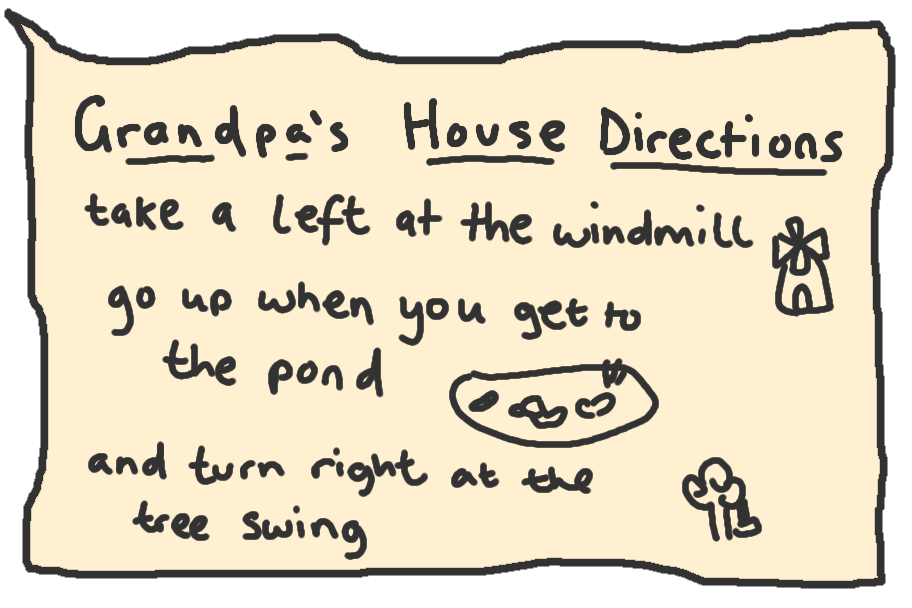 Grandpa's House Directions
take a left at the windmill
go up when you get to
the pond
and turn right at the
tree swing